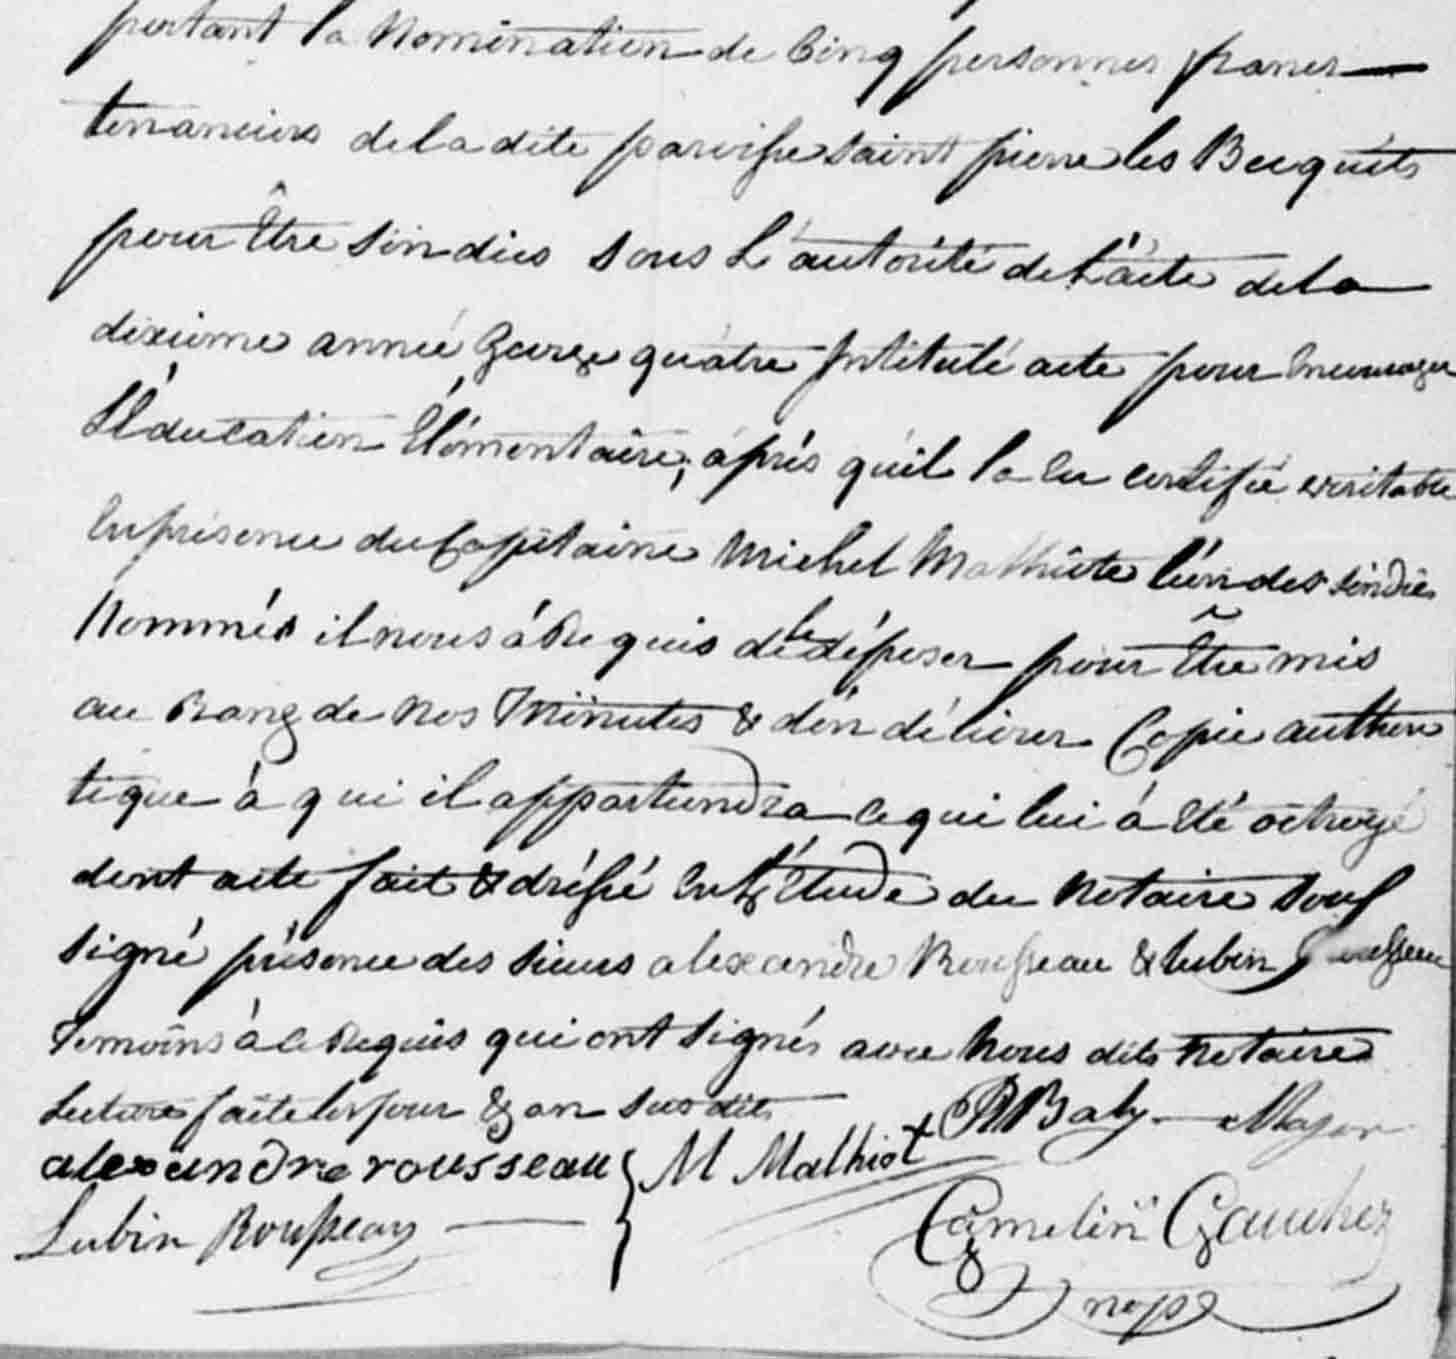 portant la Nomination de Cinq personnes francs
tenanciers de la dite paroisse saint pierre les Becquéts
pour Être sindics sous L'autorité de L'acte de la
dixieme année George quatre Intitulé acte pour Encourager
L'Éducation Élémentaire, aprés qu'il la lu certifié veritable
En présence du Capitaine Michel Mathiote l'un des sindics
Nommés il nous á Requis de le déposer pour Être mis
au Rang de nos Minutes & d'én délivrer Copie authen
tique à qui il appartiendra ce qui lui á été octroyé
dont acte fait & dréssé En L'Étude du Notaire Sous
signé présence des sieurs alexandre Rousseau & Lubin Rousseau
Temoins à ce Requis qui ont signés avec Nous dits Notaire
Lecture faite les jour & an sus dits
Baby Major
alexandre rousseau } M Mathiot
Lubin Rousseau
Camelin Gaucher